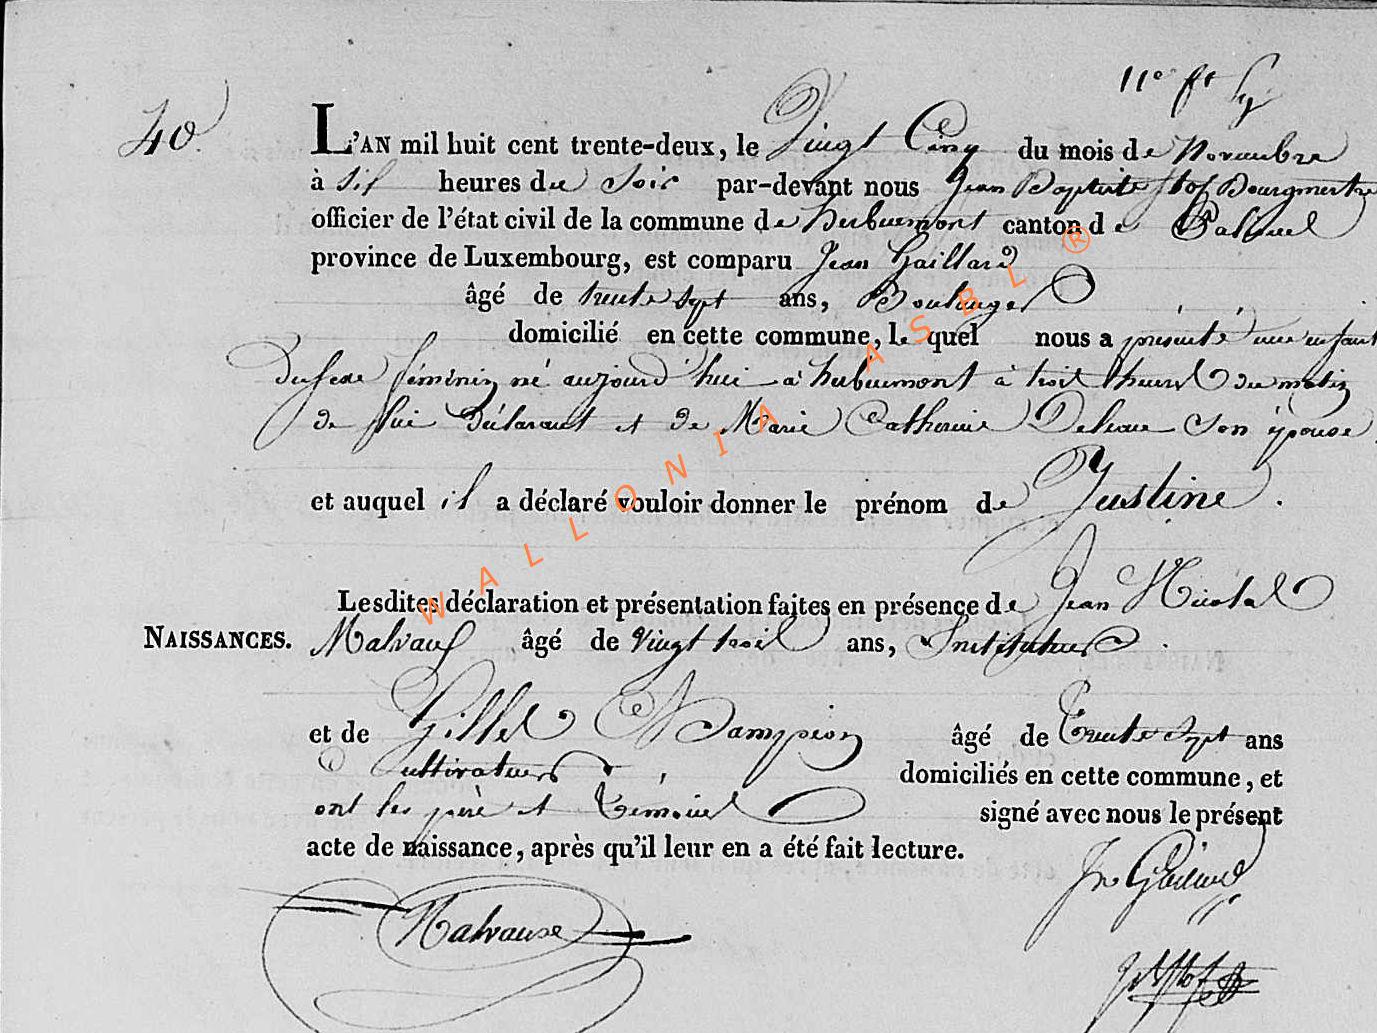 11e ft
40.
L'AN mil huit cent trente-deux, le Vingt Cinq du mois de Novembre
à six heures du Soir par-devant nous Jean Baptiste Stof Bourgmestre
officier de l'état civil de la commune de herbeumont canton de Paliseul
province de Luxembourg, est comparu Jean Gaillard
âgé de trente sept ans, Boulanger
domicilié en cette commune, le quel nous a présenté une enfant
du sexe féminin né aujourd'hui à herbeumont à trois heures du matin
de lui déclarant et de Marie Catherine son épouse
et auquel il a déclaré vouloir donner le prénom de Justine.
Lesdites déclaration et présentation faites en présence de Jean Nicolas
NAISSANCES. Malvaux âgé de vingt trois ans, Instituteur.
et de Gilles Nampion âgé de Trente Sept ans
Cultivateurs domiciliés en cette commune, et
ont les père et Témoins signé avec nous le présent
acte de naissance, après qu'il leur en a été fait lecture.
Jn Gaillard
Malvause
JB Stof
WALLONIA ASBL ®